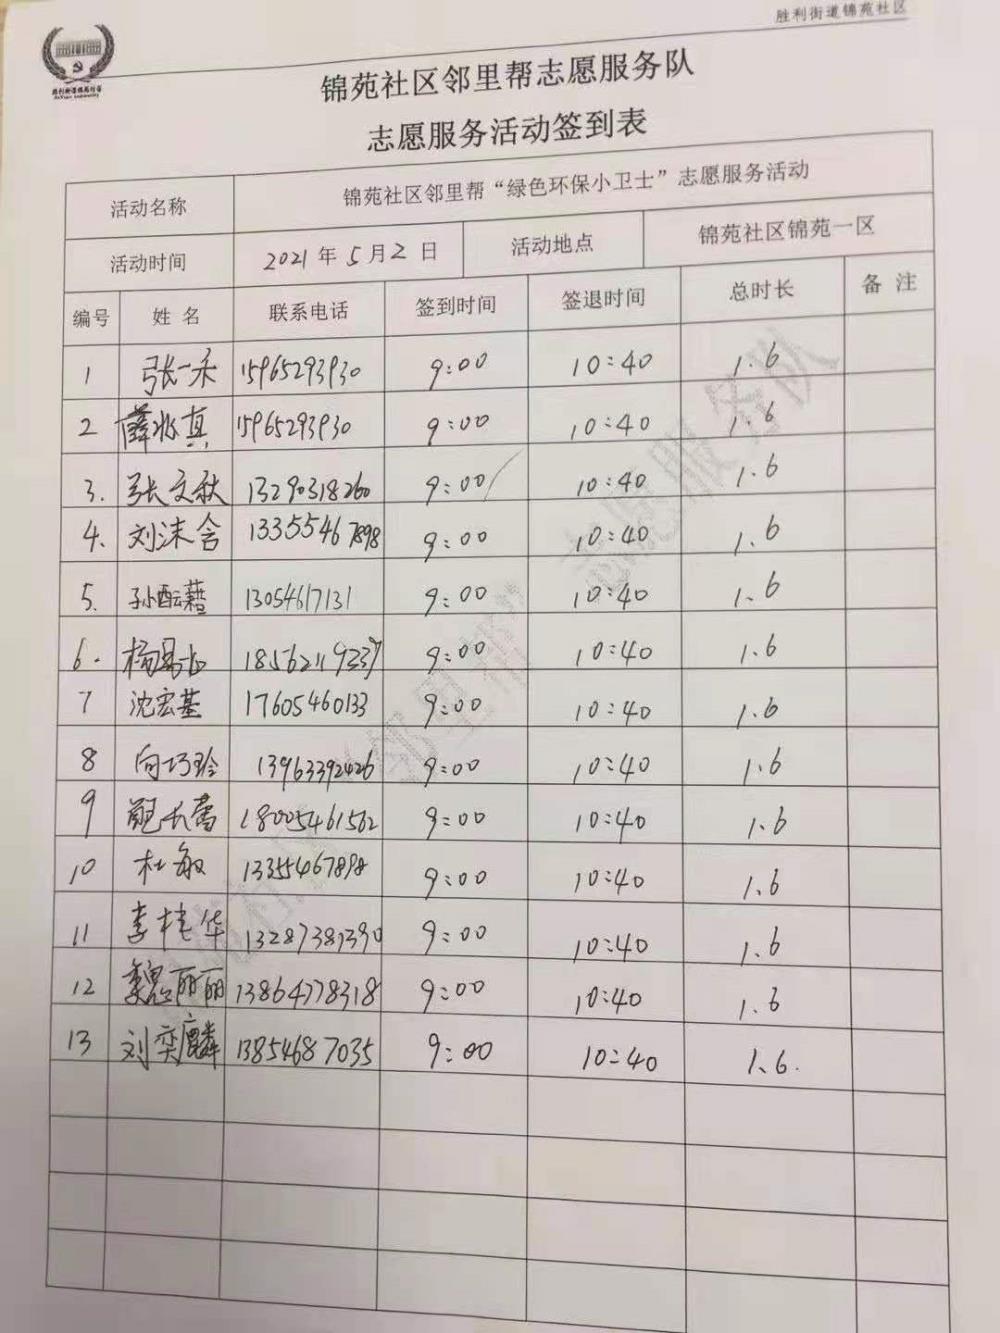 胜利街道锦苑社区
胜利街道锦苑社区
锦苑社区邻里帮志愿服务队
志愿服务活动签到表
活动名称 锦苑社区邻里帮“绿色环保小卫士”志愿服务活动
活动时间 2021年5月2日 活动地点 锦苑社区锦苑一区
编号 姓名 联系电话 签到时间 签退时间 总时长 备注
1 张一禾 15965293930 9:00 10:40 1.6
2 薛兆真 15965293930 9:00 10:40 1.6
3. 张文秋 13290318260 9:00 10:40 1.6
4. 刘沫含 13355467898 9:00 10:40 1.6
5. 孙酝藉 13054617131 9:00 10:40 1.6
6. 杨 18562119337 9:00 10:40 1.6
7 沈宏基 17605460133 9:00 10:40 1.6
8 向巧玲 13963392426 9:00 10:40 1.6
9 18005461562 9:00 10:40 1.6
10 杜敏 13355467898 9:00 10:40 1.6
11 李桂华 13287381390 9:00 10:40 1.6
12 魏丽丽 13864778318 9:00 10:40 1.6
13 刘奕麟 13854687035 9:00 10:40 1.6.
“邻里帮”志愿服务队